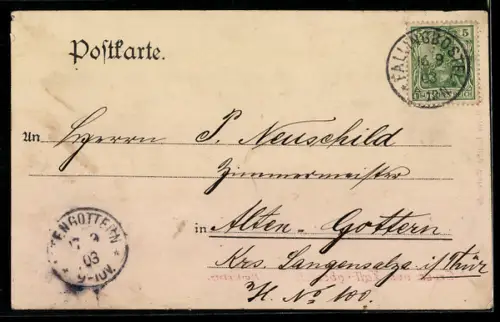 Postkarte.
5
FALLINGBOSTEL
9
03
An Herrn P. Neuschild
Zimmermeister
in Alten-Gottern
Krs. Langensalza i/Thür
H. No 100.
ENGOTTERN
9
03
9-10V.